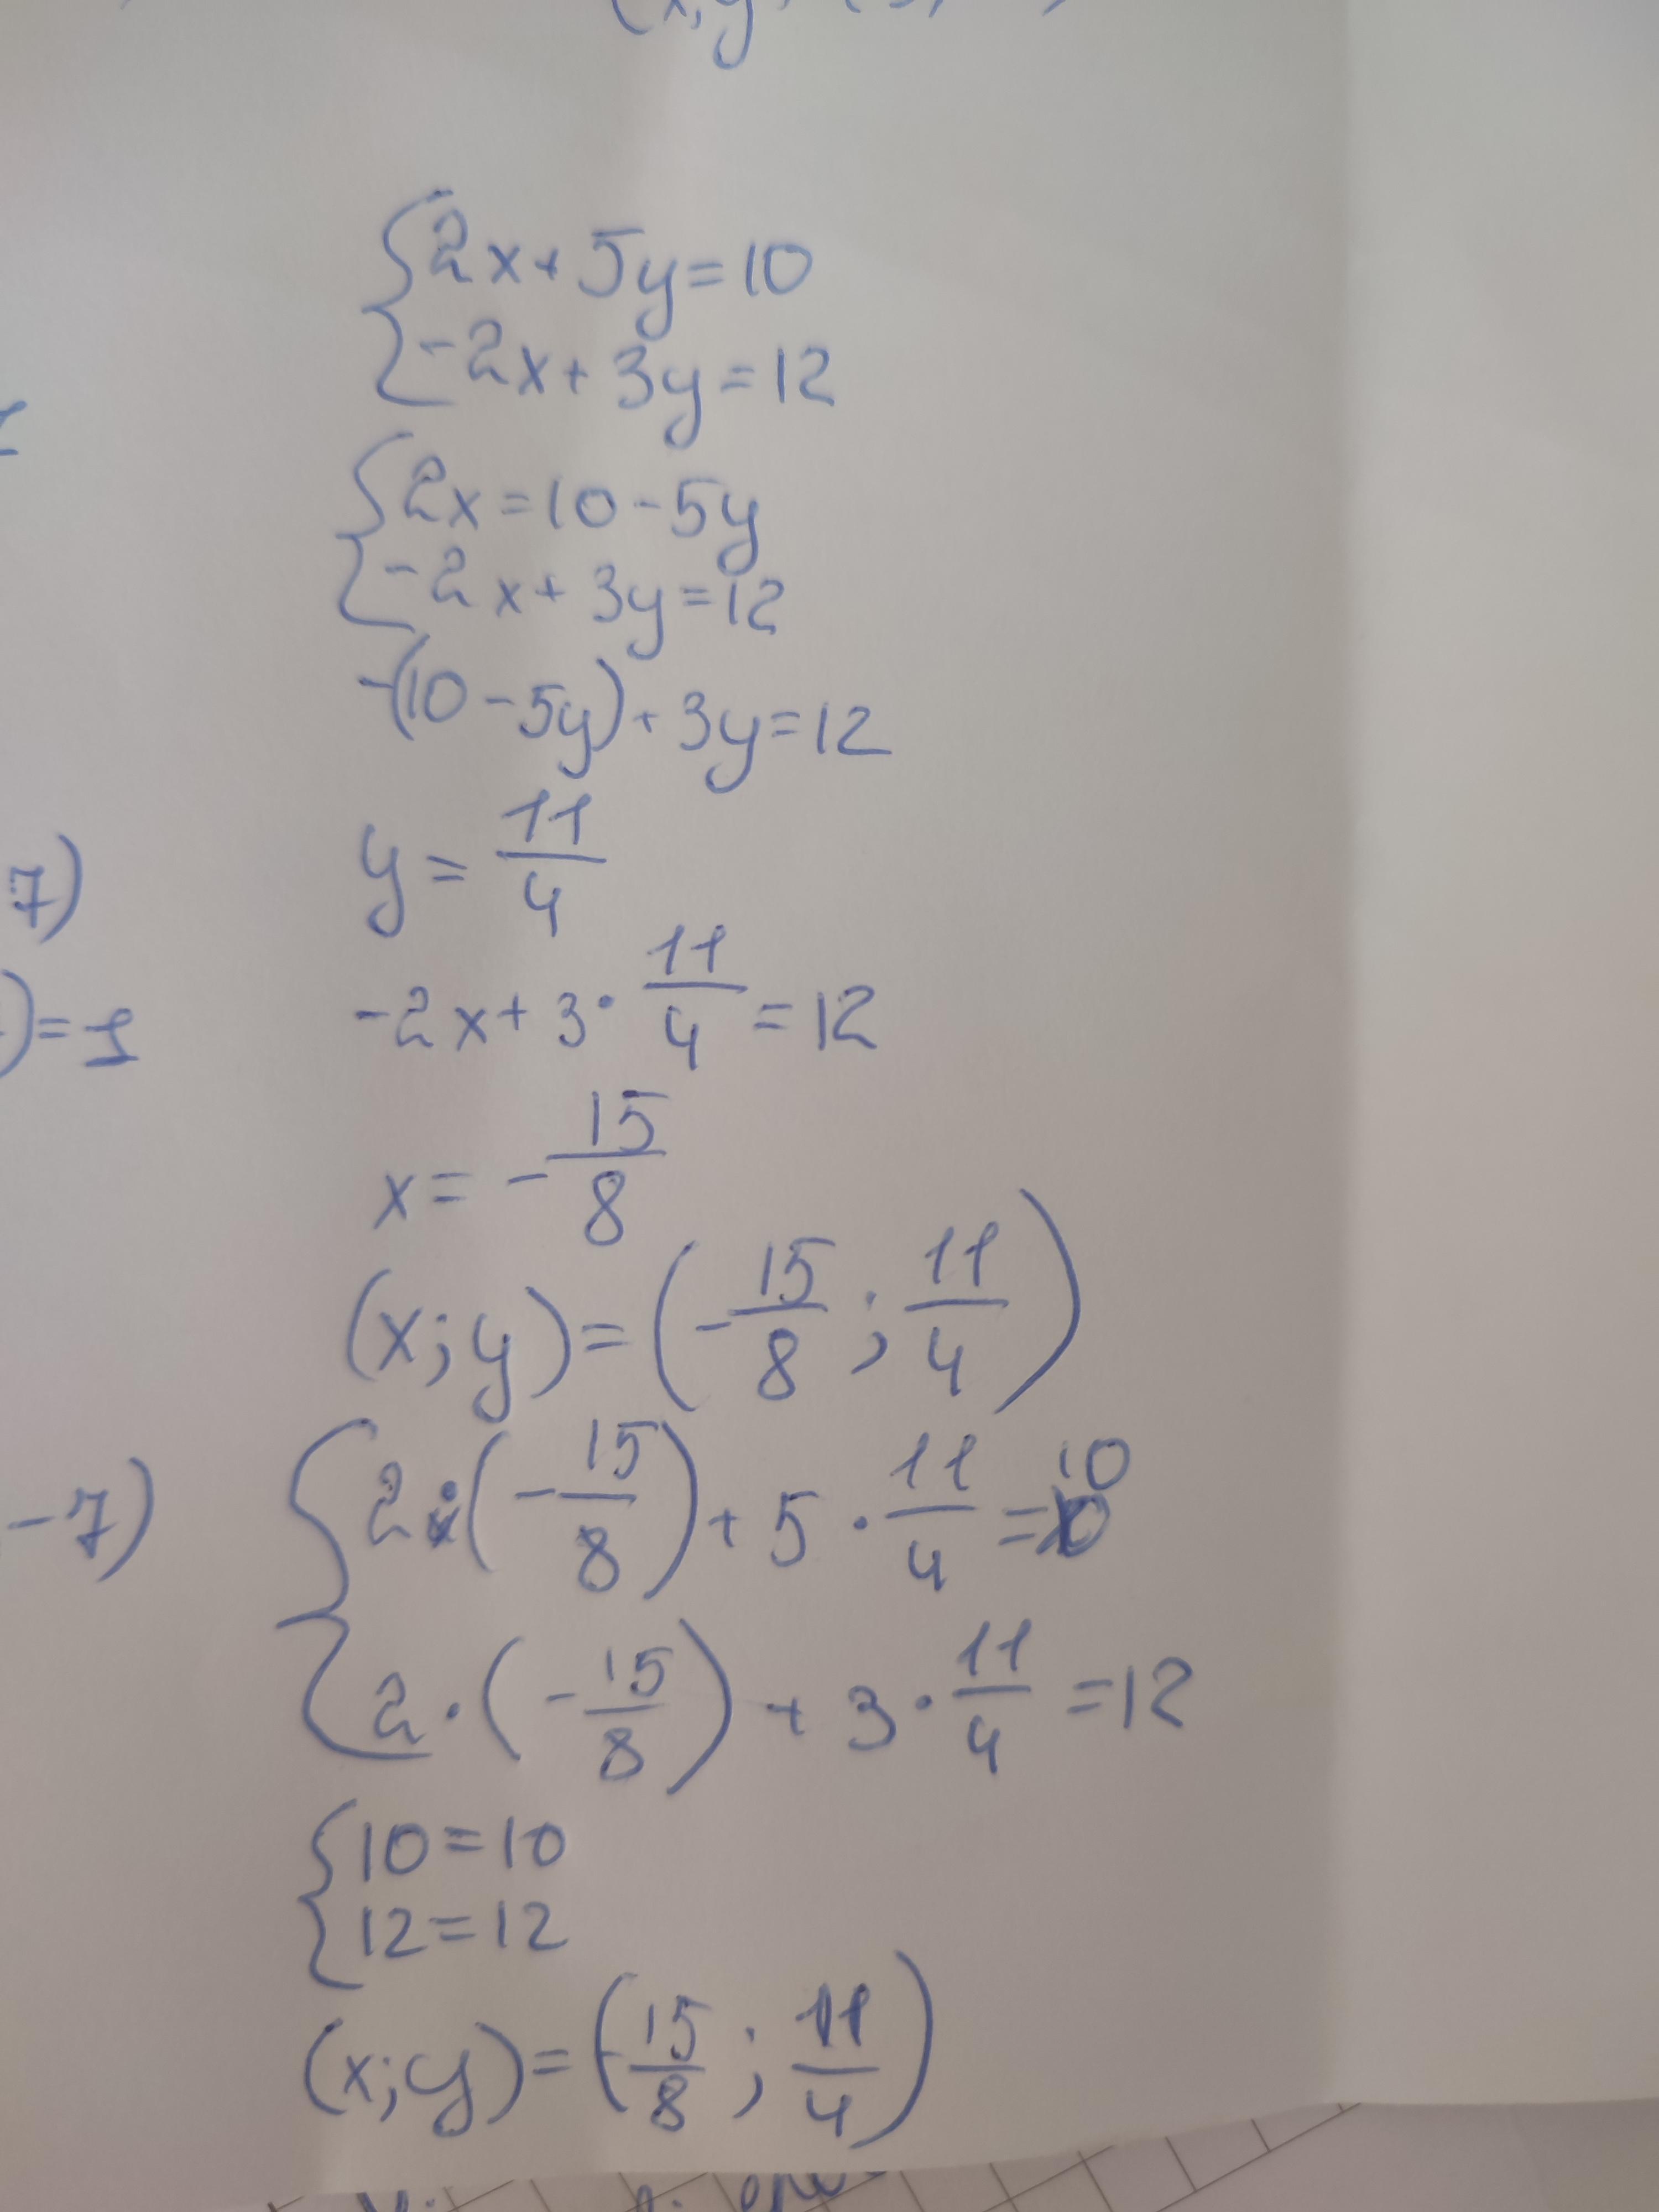 (x;y)
{2x+5y=10
{-2x+3y=12
{2x=10-5y
{-2x+3y=12
-(10-5y)+3y=12
y=11/4
7)
-2x+3·11/4=12
)=1
x=-15/8
(x;y)=(-15/8;11/4)
{2·(-15/8)+5·11/4=10
-7)
{2·(-15/8)+3·11/4=12
{10=10
{12=12
(x;y)=(-15/8;11/4)